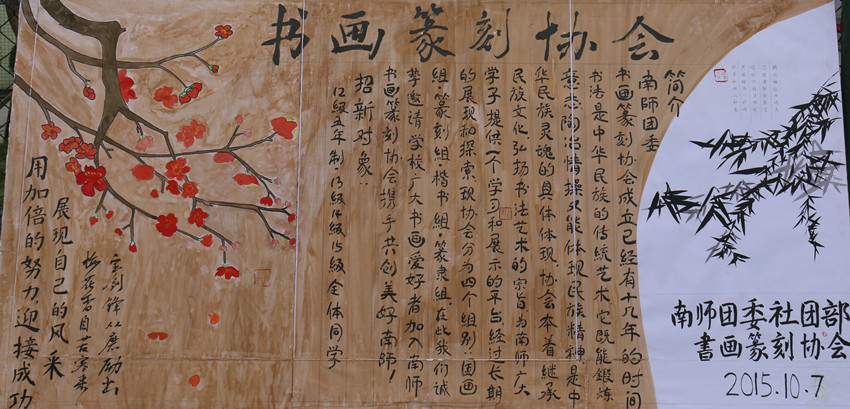 书画篆刻协会
简介
南师团委
书画篆刻协会成立已经有十几年的时间
书法是中华民族的传统艺术它既能锻炼
意志陶冶情操又能体现民族精神是中
华民族灵魂的具体体现.协会本着继承
民族文化弘扬书法艺术的宗旨为南师广大
学子提供一个学习和展示的平台经过长期
的展现和探索现协会分为四个组别:国画
组.篆刻组.楷书组.篆隶组.在此我们诚
挚邀请学校广大书画爱好者加入南师
书画篆刻协会携手共创美好南师!
招新对象:
12级五年制.13级14级15级全体同学
宝剑锋从磨励出
梅花香自苦寒来
展现自己的风采
用加倍的努力迎接成功
南师团委社团部
书画篆刻协会
2015.10.7